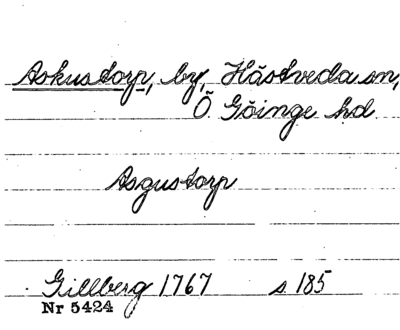 Askustorp, by, Hästveda sn,
Ö. Göinge hd
Asgustorp
Gillberg 1767 s 185
Nr 5424